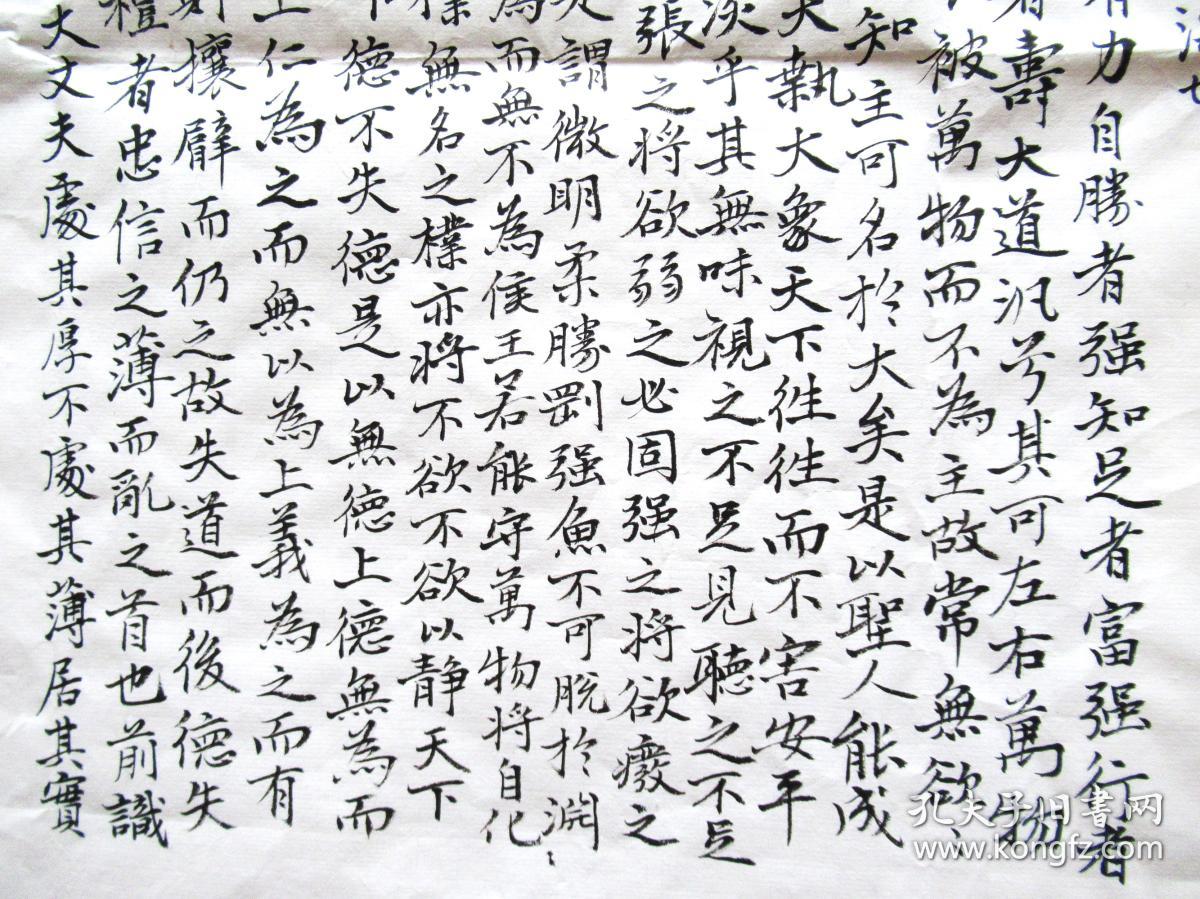 有力自勝者强知足者富强行者
者壽大道汎兮其可左右萬物
被萬物而不為主故常無欲
知主可名於大矣是以聖人能成
大執大象天下往往而不害安平
淡乎其無味視之不足見聽之不足
張之将欲弱之必固强之将欲癈之
謂微明柔勝剛强魚不可脫於淵
為而無不為侯王若能守萬物将自化
樸無名之樸亦将不欲不欲以静天下
德不失德是以無德上德無為而
上仁為之而無以為上義為之而有
則攘臂而仍之故失道而後德失
禮者忠信之薄而亂之首也前識
大丈夫處其厚不處其薄居其實
孔夫子旧书网
www.kongfz.com